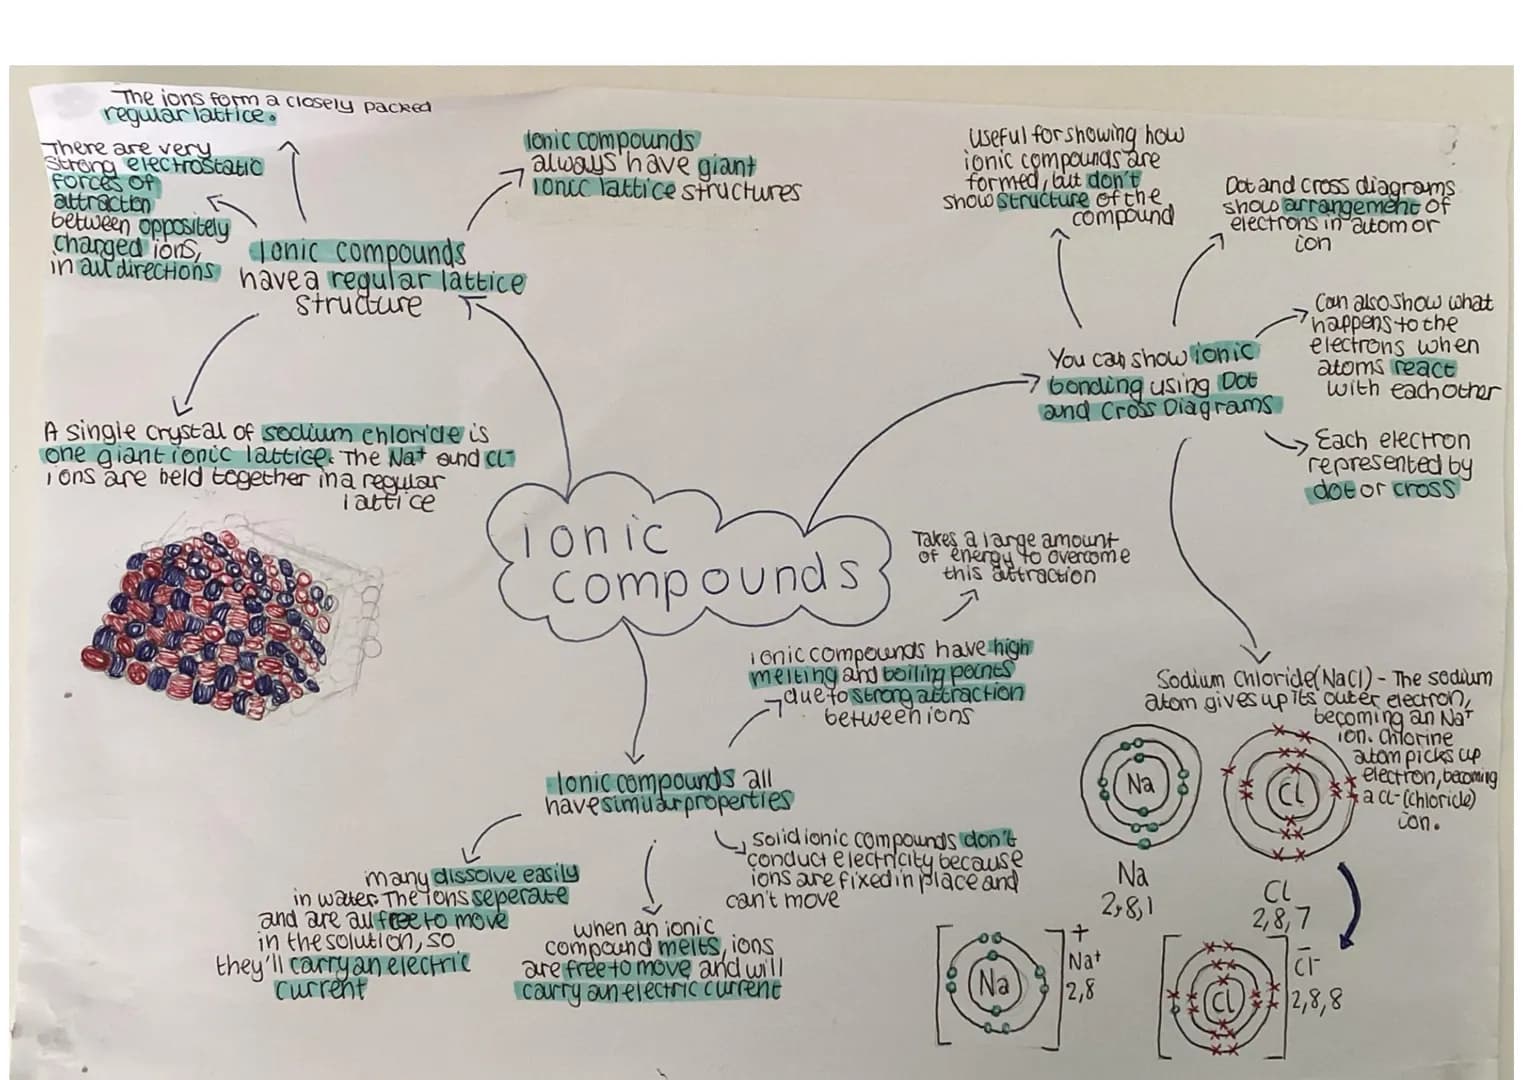 The ions form a closely packed
regular lattice.
There are very
strong electrostatic
forces of
attraction
between oppositely
charged ions,
in all directions
Ionic compounds
have a regular lattice
structure
Ionic compounds
always have giant
ionic lattice structures
A single crystal of sodium chloride is
one giant ionic lattice. The Na+ and Cl-
ions are held together in a regular
lattice
ionic
compounds
Useful for showing how
ionic compounds are
formed, but don't
show structure of the
compound
Dot and cross diagrams
show arrangement of
electrons in atom or
ion
You can show ionic
bonding using Dot
and Cross Diagrams
Can also show what
happens to the
electrons when
atoms react
with each other
Each electron
represented by
dot or cross
Takes a large amount
of energy to overcome
this attraction
ionic compounds have high
melting and boiling points
due to strong attraction
between ions
Ionic compounds all
have similar properties
many dissolve easily
in water. The ions seperate
and are all free to move
in the solution, so
they'll carry an electric
current
when an ionic
compound melts, ions
are free to move and will
carry an electric current
Solid ionic compounds don't
conduct electricity because
ions are fixed in place and
can't move
Sodium Chloride (NaCl) - The sodium
atom gives up its outer electron,
becoming an Na+
ion. Chlorine
atom picks up
electron, becoming
a Cl- (chloride)
ion.
Na
Cl
Na
2,8,1
Cl
2,8,7
Na
+
Na+
2,8
Cl
-
Cl-
2,8,8